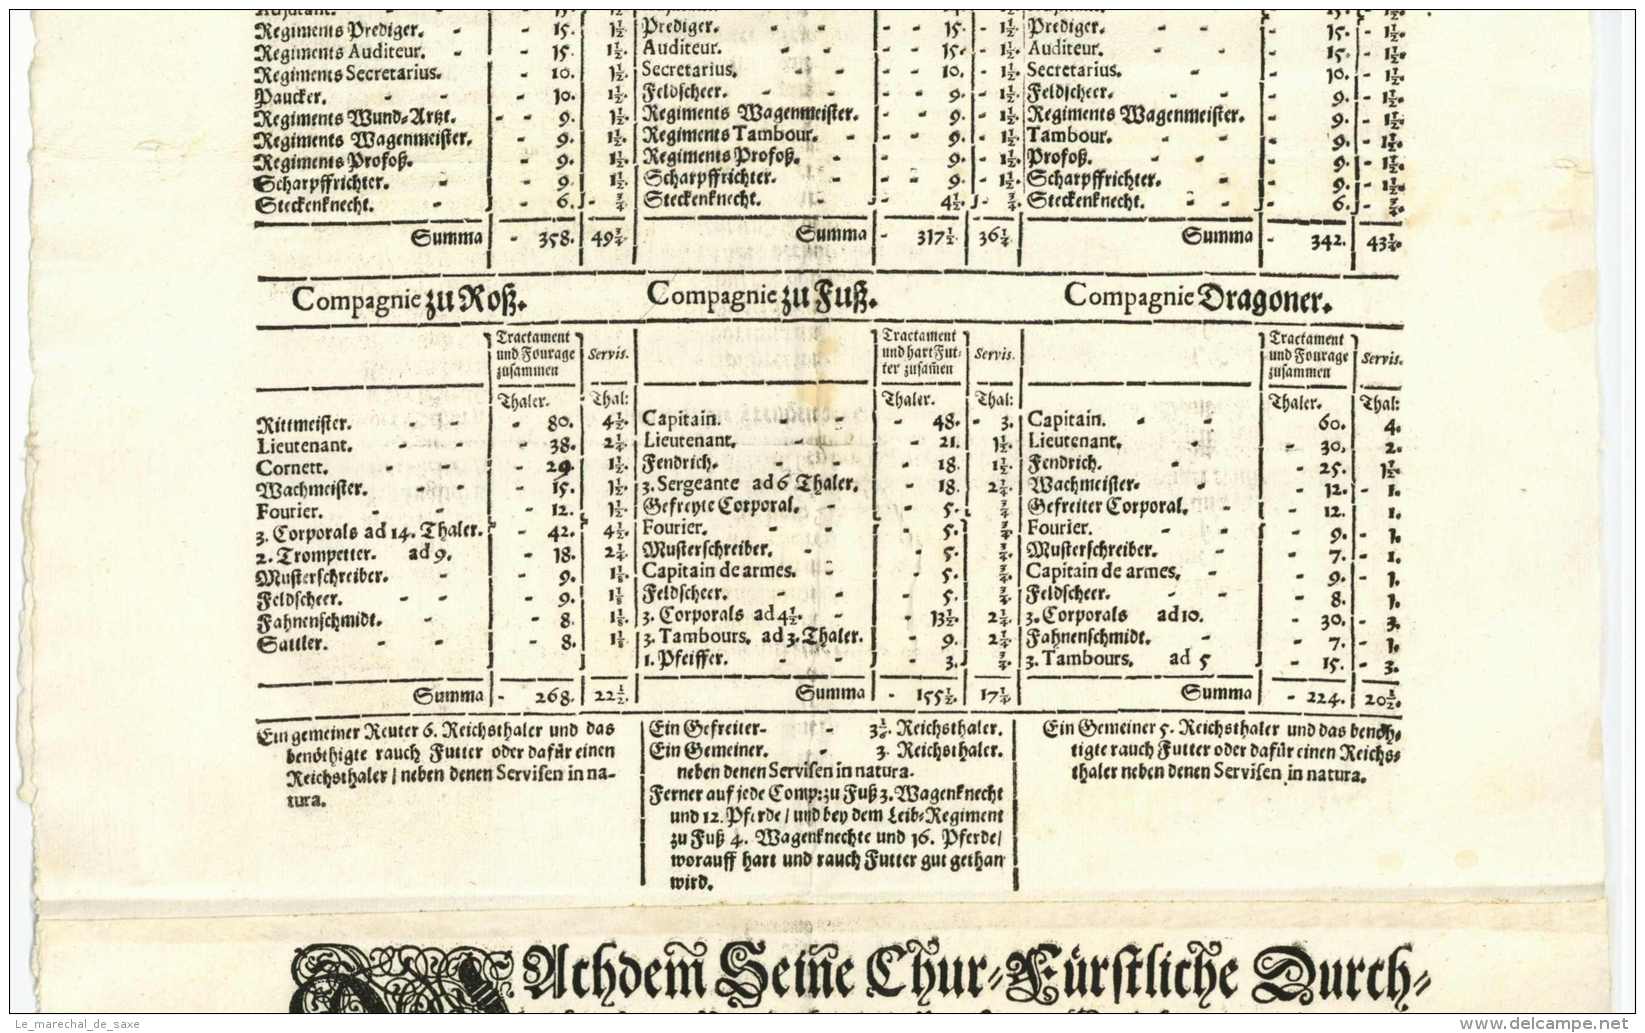 Regiments Prediger. - - 15. 1½. Prediger. - - - 15. - 1½. Prediger. - - - 15. - 1½.
Regiments Auditeur. - - 15. 1½. Auditeur. - - - 15. - 1½. Auditeur. - - - 15. - 1½.
Regiments Secretarius. - 10. 1½. Secretarius. - - - 10. - 1½. Secretarius. - - 10. - 1½.
Paucker. - - - 10. 1½. Feldscheer. - - - 9. - 1½. Feldscheer. - - - 9. - 1½.
Regiments Wund-Artzt. - - 9. 1½. Regiments Wagenmeister. - - 9. - 1½. Regiments Wagenmeister. - 9. - 1½.
Regiments Wagenmeister. - 9. 1½. Regiments Tambour. - - 9. - 1½. Tambour. - - 9. - 1½.
Regiments Profoß. - - 9. 1½. Regiments Profoß. - - 9. - 1½. Profoß. - - - 9. - 1½.
Scharpffrichter. - - 9. 1½. Scharpffrichter. - - - 9. - 1½. Scharpffrichter. - - 9. - 1½.
Steckenknecht. - - 6. - ¾. Steckenknecht. - - 4½. - ¾. Steckenknecht. - - - 6. - ¾.
Summa - 358. 49¾. Summa - 317½. 36¼. Summa - 342. 43½.
Compagnie zu Roß. Compagnie zu Fuß. Compagnie Dragoner.
Tractament Tractament Tractament
und Fourage Servis. und hart Fut- Servis. und Fourage Servis.
zusammen ter zusam̃en zusammen
Thaler. Thal: Thaler. Thal: Thaler. Thal:
Rittmeister. - - - 80. 4½. Capitain. - - - 48. - 3. Capitain. - - 60. 4.
Lieutenant. - - - 38. 2¼. Lieutenant. - - - 21. 1½. Lieutenant. - - 30. 2.
Cornett. - - - 29. 1½. Fendrich. - - - 18. 1½. Fendrich. - - 25. 1½.
Wachmeister. - - - 15. 1½. 3. Sergeante ad 6 Thaler. - 18. 2¼. Wachmeister. - - 12. - 1.
Fourier. - - - 12. 1½. Gefreyte Corporal. - - 5. ¾. Gefreiter Corporal. - - 12. 1.
3. Corporals ad 14. Thaler. - 42. 4½. Fourier. - - - 5. ¾. Fourier. - - - 9. - 1.
2. Trompetter. ad 9. - 18. 2¼. Musterschreiber. - - 5. ¾. Musterschreiber. - - 7. - 1.
Musterschreiber. - - 9. 1⅛. Capitain de armes. - - 5. ¾. Capitain de armes. - - 9. - 1.
Feldscheer. - - - 9. 1⅛. Feldscheer. - - - 5. ¾. Feldscheer. - - 8. 1.
Fahnenschmidt. - - - 8. 1⅛. 3. Corporals ad 4½. - - 13½. 2¼. 3. Corporals ad 10. - 30. - 3.
Sattler. - - - 8. 1⅛. 3. Tambours. ad 3. Thaler. - 9. 2¼. Fahnenschmidt. - - 7. - 1.
1. Pfeiffer. - - - 3. ¾. 3. Tambours. ad 5 - 15. - 3.
Summa - 268. 22½. Summa - 155½. 17¼. Summa - 224. 20½.
Ein gemeiner Reuter 6. Reichsthaler und das
benöthigte rauch Futter oder dafür einen
Reichsthaler / neben denen Servisen in na-
tura.
Ein Gefreiter- - 3½. Reichsthaler.
Ein Gemeiner. - 3. Reichsthaler.
neben denen Servisen in natura.
Ferner auf jede Comp: zu Fuß 3. Wagenknecht
und 12. Pferde / und bey dem Leib-Regiment
zu Fuß 4. Wagenknechte und 16. Pferde /
worauff hart und rauch Futter gut gethan
wird.
Ein Gemeiner 5. Reichsthaler und das benöh-
tigte rauch Futter oder dafür einen Reichs-
thaler neben denen Servisen in natura.
NAchdem̃ Seine Chur-Fürstliche Durch-
Le_marechal_de_saxe
delcampe.net